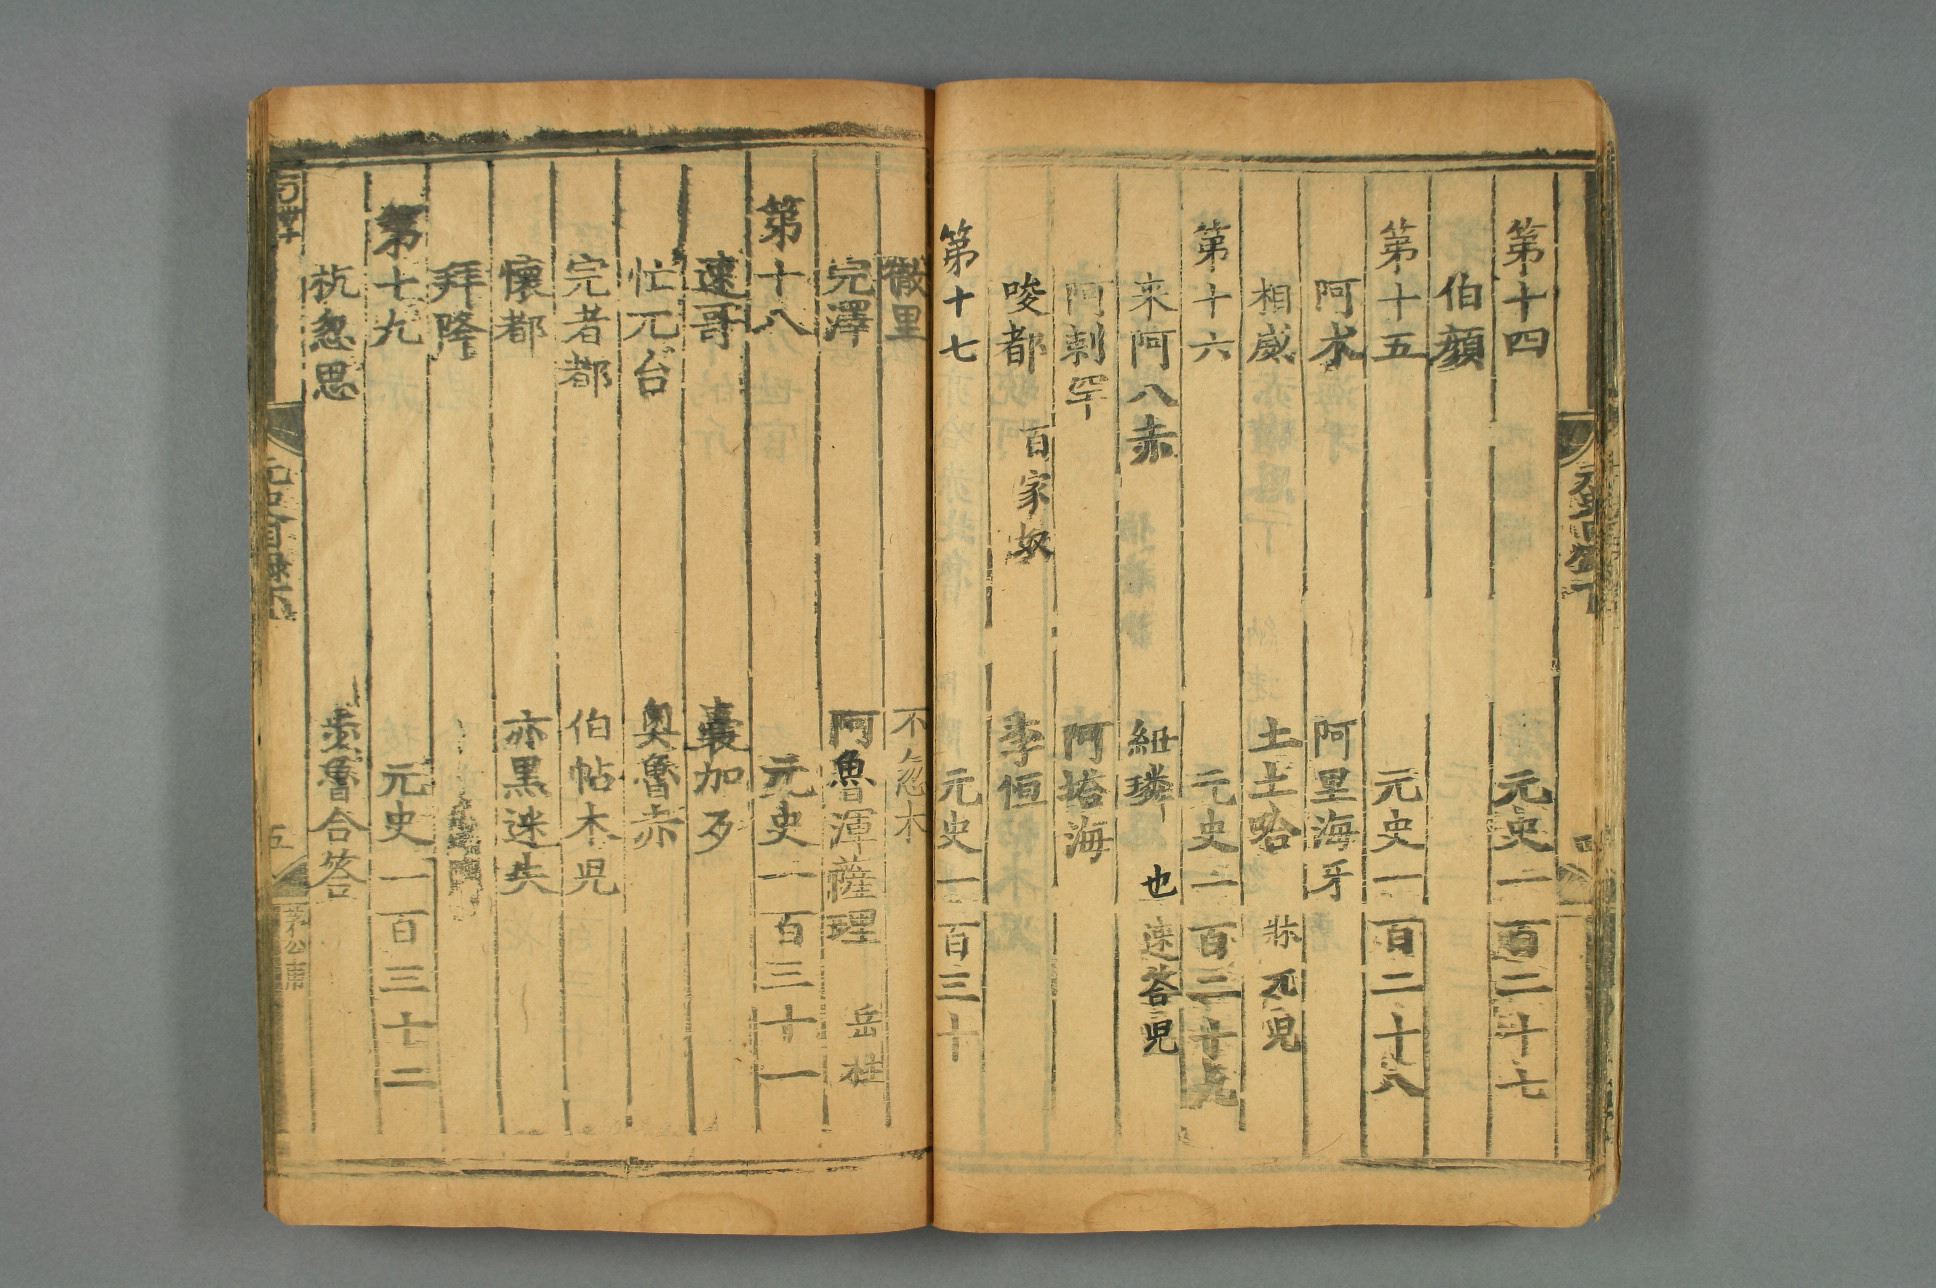 第十四 元史一百二十七
伯顔
第十五 元史一百二十八
阿朮 阿里海牙
相威 土土哈 牀兀児
第十六 元史一百二十九
来阿八赤 紐璘 也速荅児
阿剌罕 阿塔海
唆都 百家奴 李恒
第十七 元史一百三十
徹里 不忽木
完澤 阿魯渾薩理 岳柱
第十八 元史一百三十一
速哥 囊加歹
忙兀台 奥魯赤
完者都 伯帖木児
懷都 亦黒迷失
拜降
第十九 元史一百三十二
杭忽思 歩魯合荅
元史目録下
五